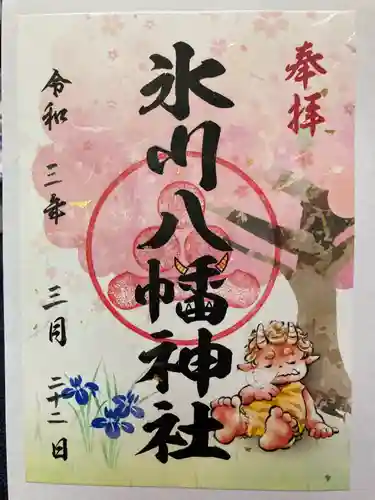 奉拝
氷川八幡神社
令和三年三月二十二日